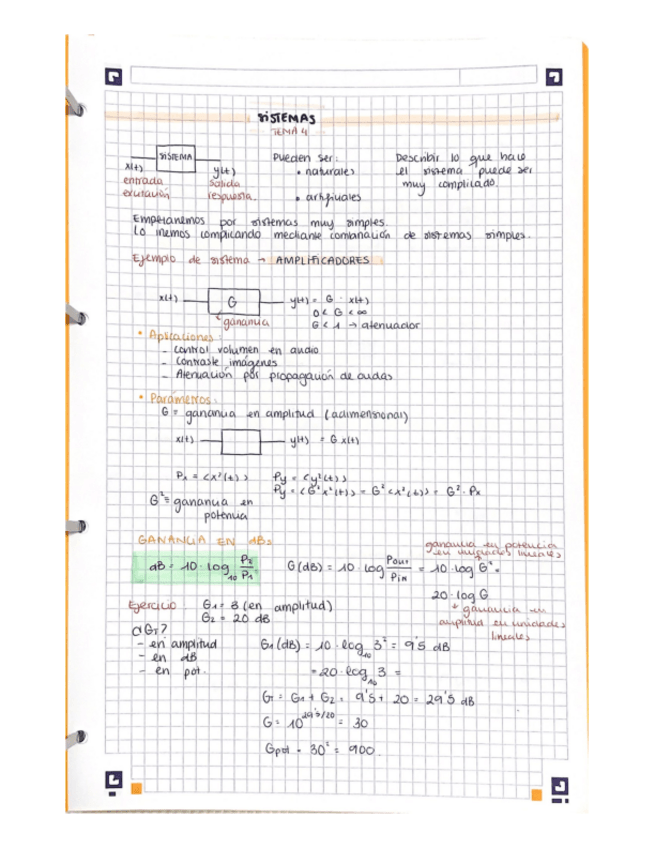 SISTEMAS
TEMA 4
SISTEMA
x(t)
entrada
excitación
y(t)
salida
respuesta.
Pueden ser:
• naturales
• artificiales
Describir lo que hace
el sistema puede ser
muy complicado.
Empezaremos por sistemas muy simples.
Lo iremos complicando mediante combinación de sistemas simples.
Ejemplo de sistema → AMPLIFICADORES
x(t) G y(t) = G · x(t)
ganancia
0 < G < ∞
G < 1 → atenuador
• Aplicaciones:
- Control volumen en audio
- Contraste imágenes
- Atenuación por propagación de ondas
• Parámetros:
G = ganancia en amplitud (adimensional)
x(t) y(t) = G x(t)
Px = <x²(t)> Py = <y²(t)>
Py = <G² x²(t)> = G² <x²(t)> = G² · Px
G² = ganancia en
potencia
GANANCIA EN dBs
dB = 10 · log₁₀ P₂/P₁
G(dB) = 10 · log Pout/Pin = 10 · log G² =
20 · log G
ganancia en potencia
en unidades lineales
ganancia en
amplitud en unidades
lineales
Ejercicio: G₁ = 3 (en amplitud)
G₂ = 20 dB
¿GT?
- en amplitud
- en dB
- en pot.
G₁(dB) = 10 · log₁₀ 3² = 9'5 dB
= 20 · log₁₀ 3 =
G = G₁ + G₂ = 9'5 + 20 = 29'5 dB
G = 10^29'5/20 = 30
Gpot = 30² = 900.